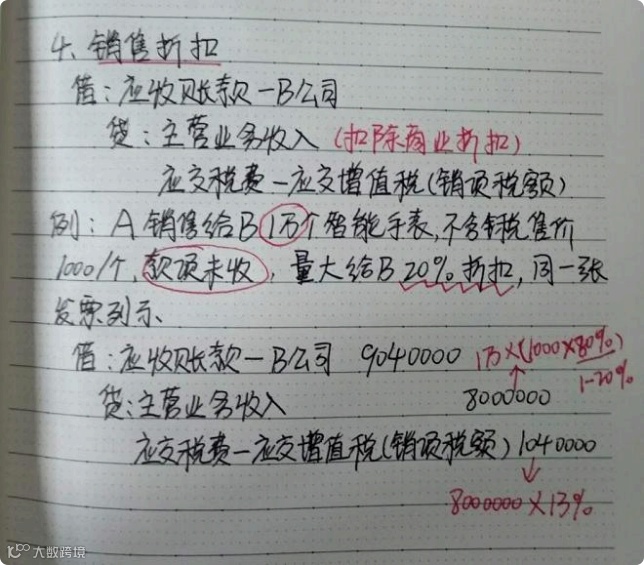 4、销售折扣
借：应收账款一B公司
贷：主营业务收入（扣除商业折扣）
应交税费一应交增值税(销项税额)
例：A销售给B1万个智能手表,不含税售价
1000/个,款项未收,量大给B20%折扣,同一张
发票列示、
借：应收账款一B公司 9040000 1万×(1000×80%)
1-20%
贷：主营业务收入 8000000
应交税费一应交增值税(销项税额) 1040000
8000000×13%
大数跨境